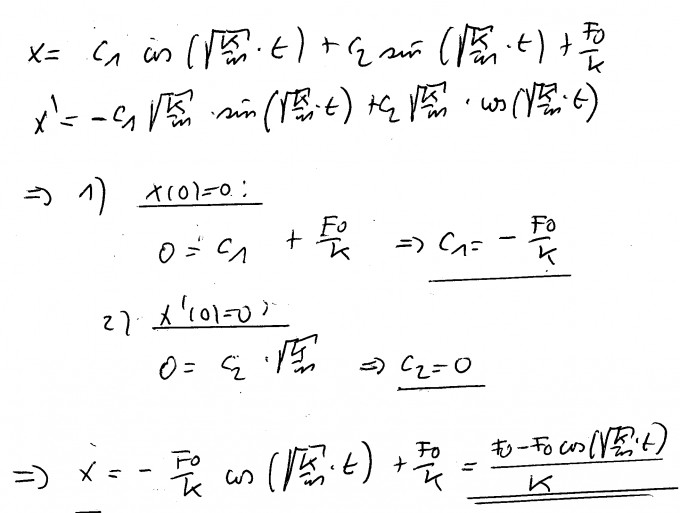 x = C₁ cos (√(k/m) · t) + C₂ sin (√(k/m) · t) + F₀/k
x' = -C₁ √(k/m) · sin (√(k/m) · t) + C₂ √(k/m) · cos (√(k/m) · t)
=> 1) x(0)=0:
0 = C₁ + F₀/k => C₁ = - F₀/k
2) x'(0)=0:
0 = C₂ · √(k/m) => C₂ = 0
=> x = - F₀/k cos (√(k/m) · t) + F₀/k = (F₀ - F₀ cos (√(k/m) · t))/k